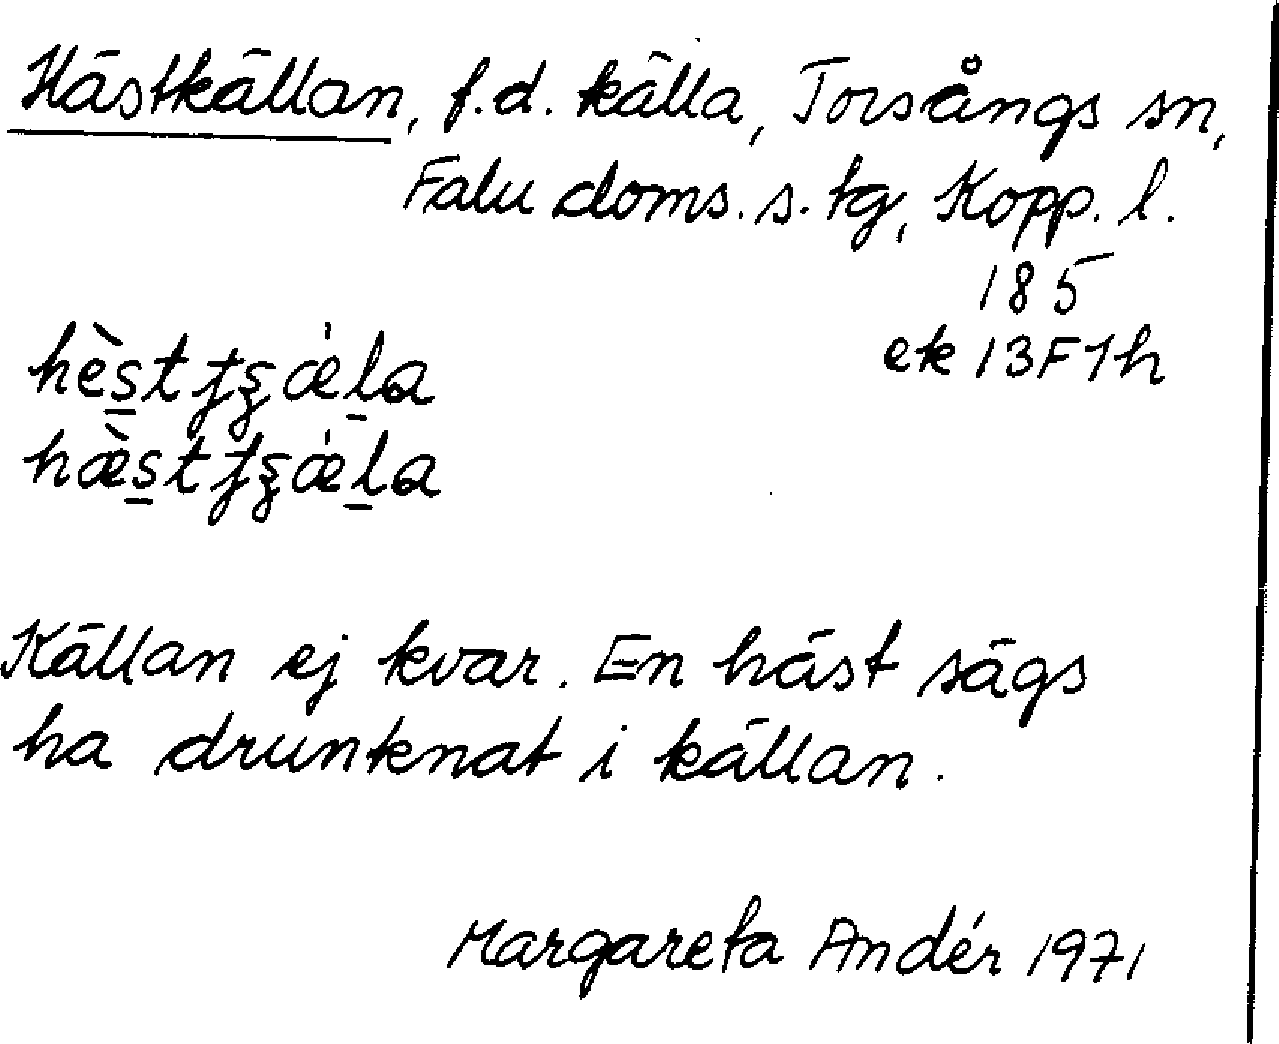 Hästkällan, f.d. källa, Torsångs sn,
Falu doms. s. tg, Kopp. l.
185
ek 13F1h
Källan ej kvar. En häst sägs
ha drunknat i källan.
Margareta Andér 1971